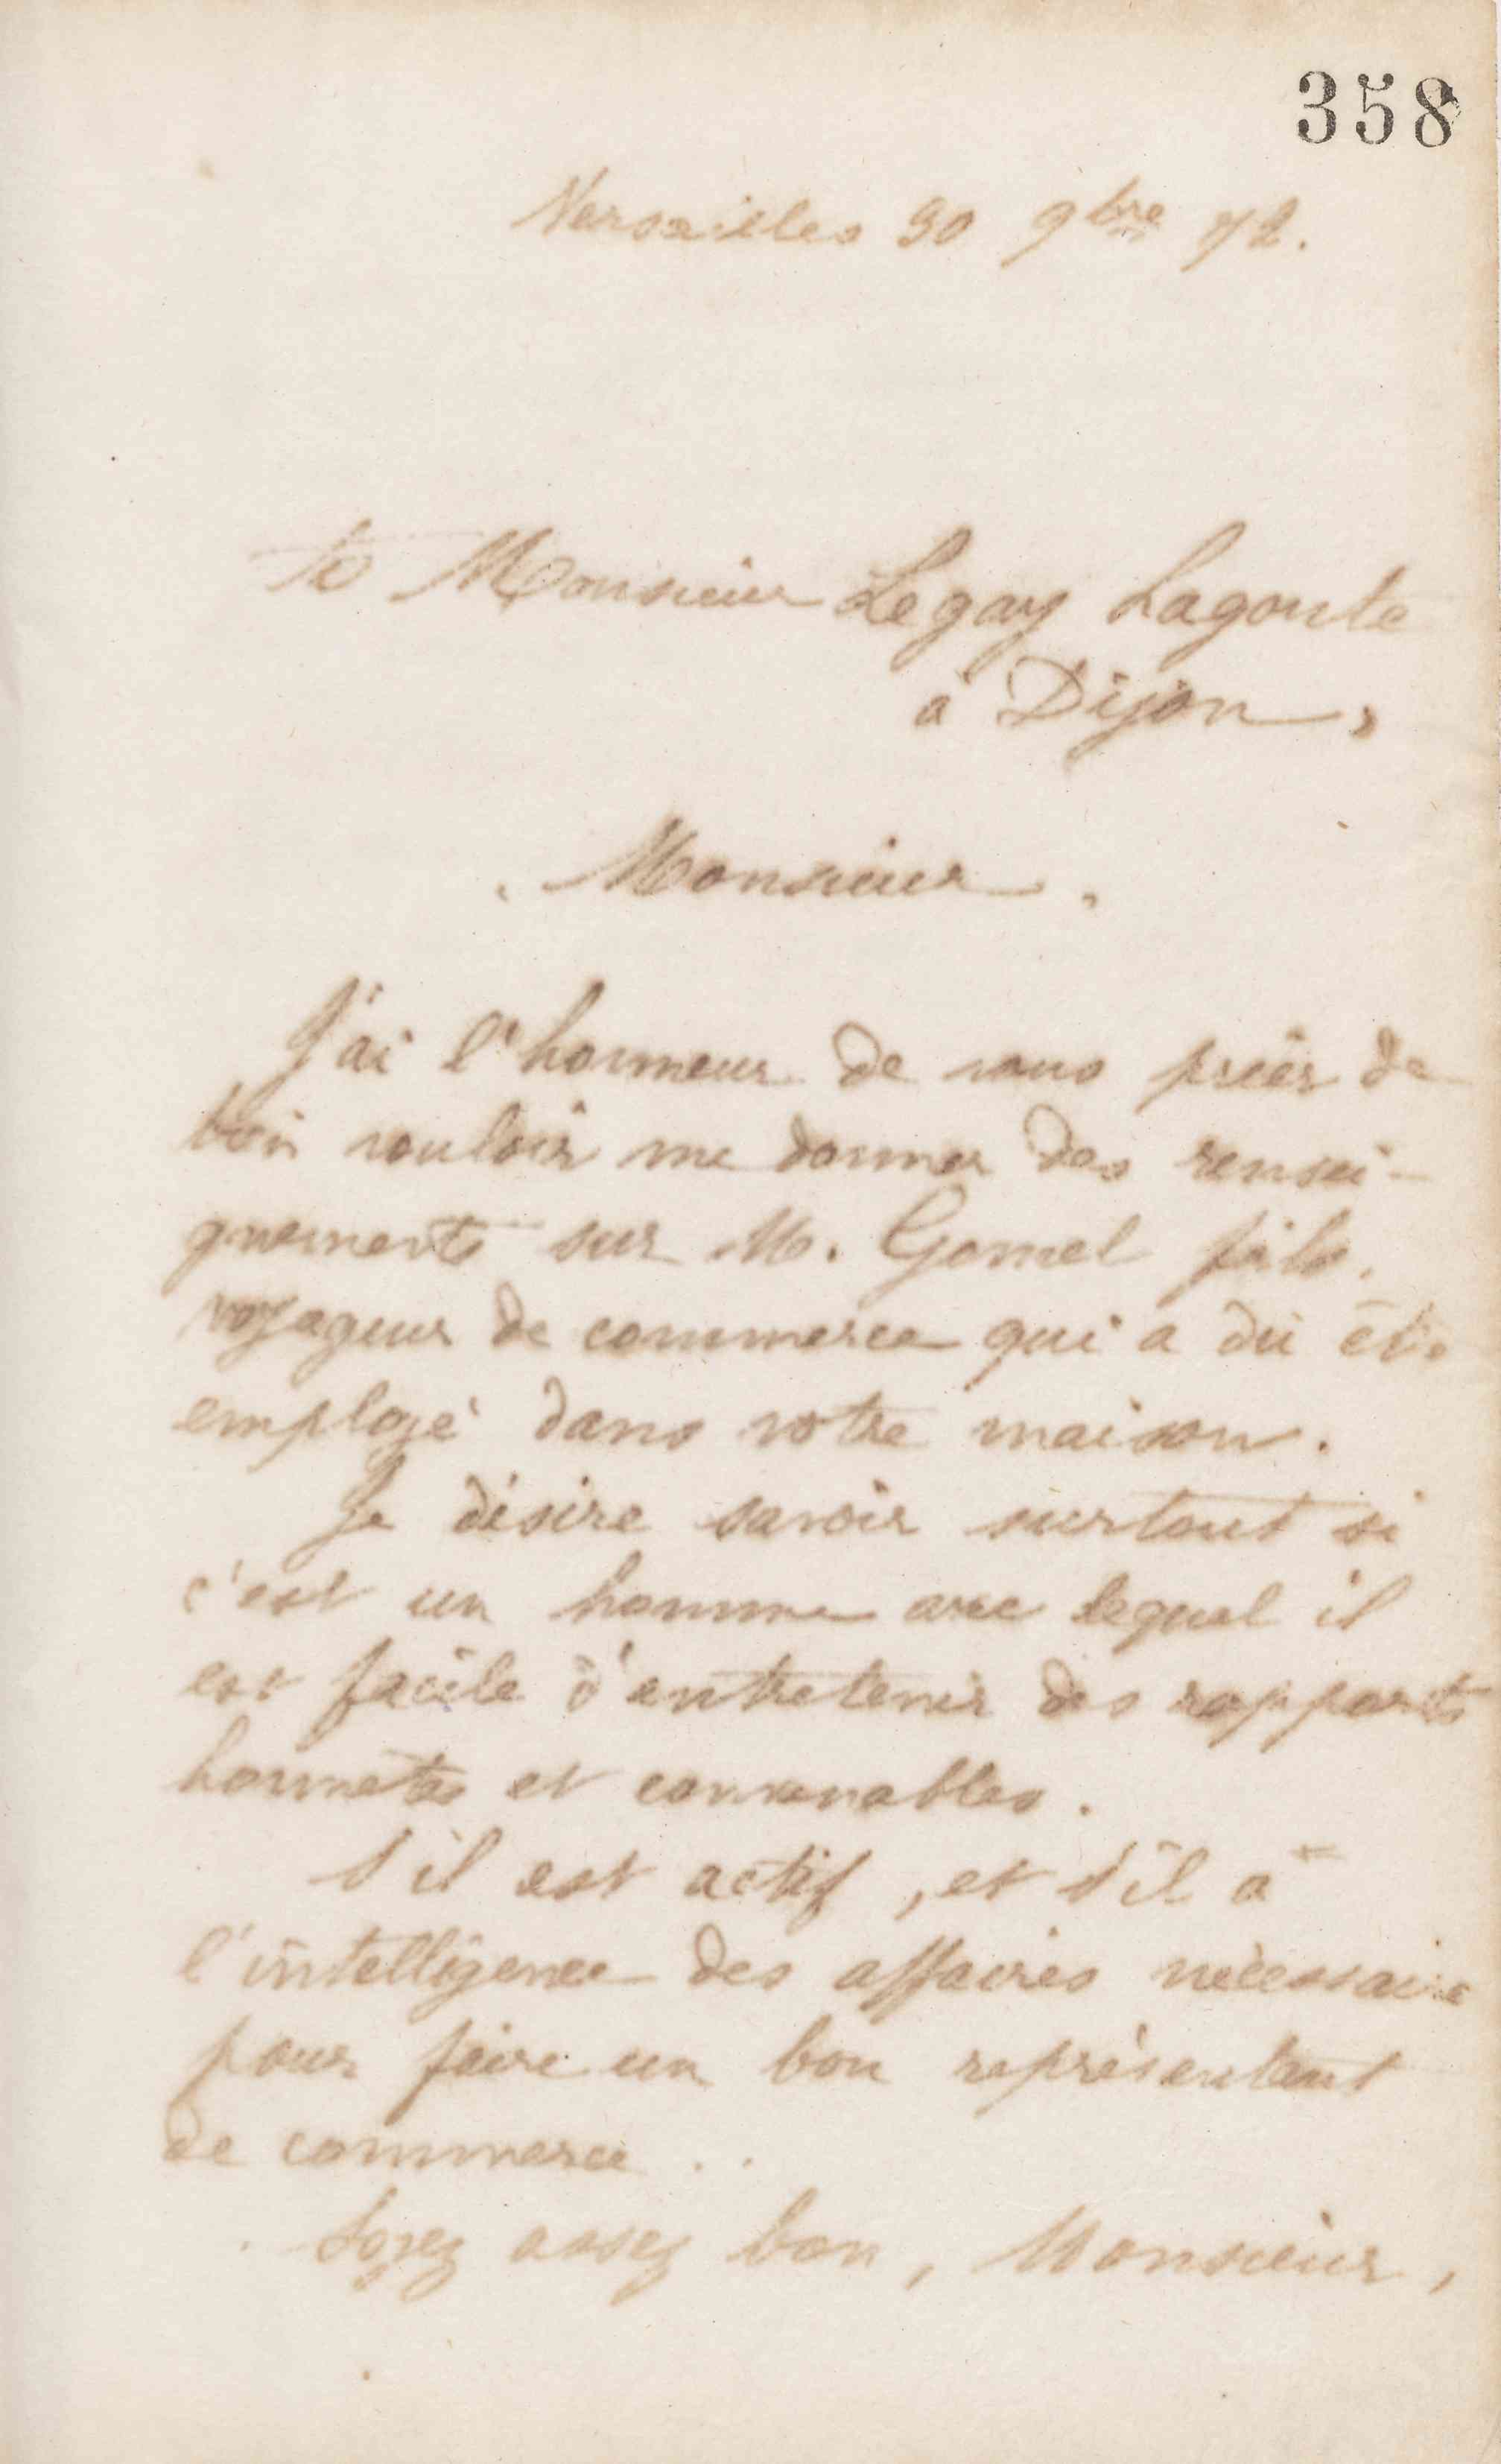 358
Versailles 30 9bre 72.
to Monsieur Legay Lagoute
à Dijon,
Monsieur,
J'ai l'honneur de vous prier de
bien vouloir me donner des rensei-
gnements sur M. Gomel fils,
voyageur de commerce qui a dû être
employé dans votre maison.
Je désire savoir surtout si
c'est un homme avec lequel il
est facile d'entretenir des rapports
honnetes et convenables.
S'il est actif, et s'il a
l'intelligence des affaires nécessaire
pour faire un bon représentant
de commerce..
Soyez assez bon, Monsieur,